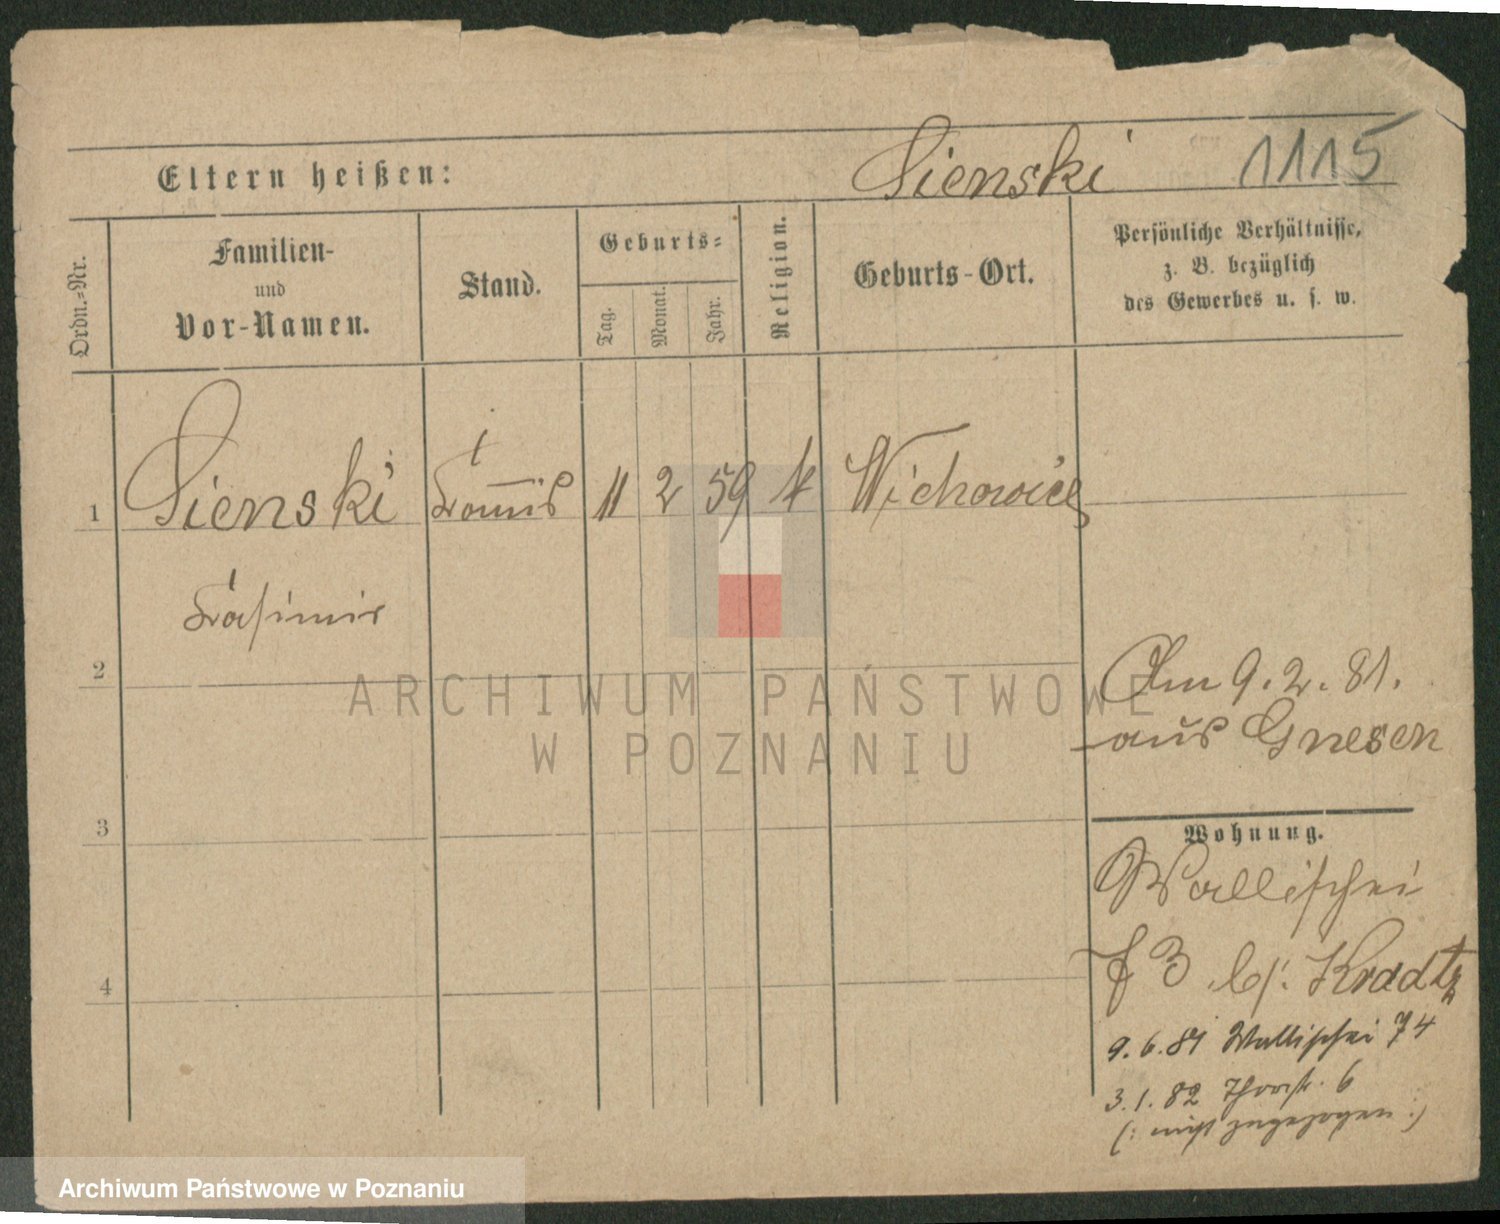 Sienski 1115
Eltern heißen:
Ordn.-Nr.
Familien-
und
Vor-Namen.
Stand.
Geburts-
Tag.
Monat.
Jahr.
Religion.
Geburts-Ort.
Persönliche Verhältnisse,
z. B. bezüglich
des Gewerbes u. s. w.
1 Sienski Commis 11 2 59 k Wichowiec
Casimir
2
Am 9. 2. 81.
aus Gnesen
ARCHIWUM PAŃSTWOWE
W POZNANIU
3
Wohnung.
Wallischei
73 b/. Kradtz
4
9. 6. 81 Wallischei 74
3. 1. 82 Thorstr. 6
(: nicht zugezogen :)
Archiwum Państwowe w Poznaniu